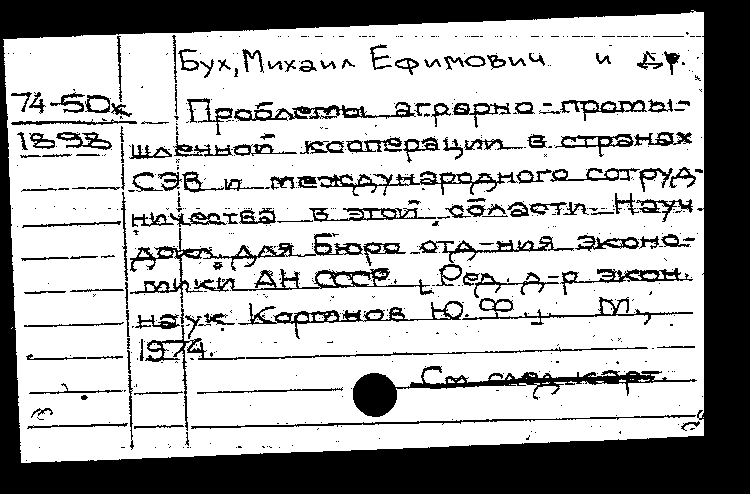 Бух, Михаил Ефимович и др.
74-50к
1898
Проблемы аграрно-промы-
шленной кооперации в странах
СЭВ и международного сотруд-
ничества в этой области. Науч.
докл. для Бюро отд-ния эконо-
мики АН СССР. [Ред. д-р экон.
наук Корманов Ю. Ф.]. М.,
1974.
См след. карт.